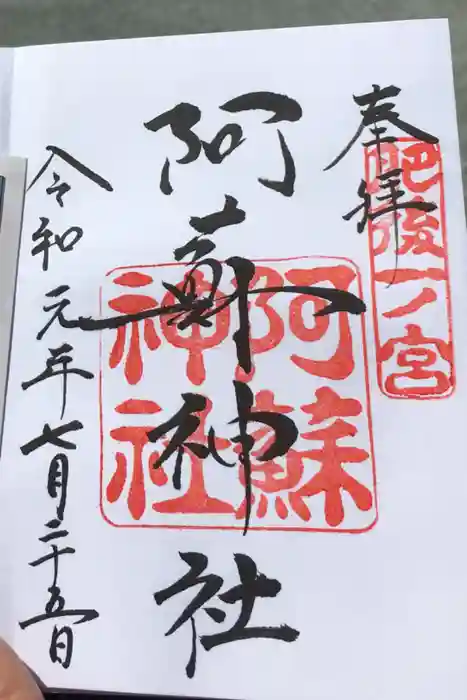 奉拝
肥後一ノ宮
阿蘇神社
阿蘇神社
令和元年七月二十五日